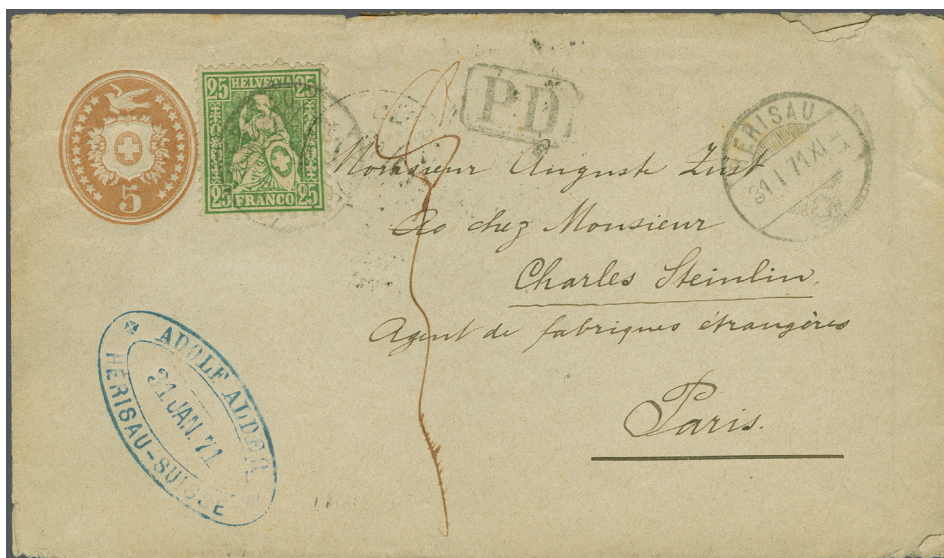 25 HELVETIA 25
25 FRANCO 25
5
PD
HERISAU
31 I 71 XI
Monsieur Auguste Züst
chez Monsieur
Charles Steinlin.
Agent de fabriques étrangères
Paris.
ADOLF ALDER
31 JAN. 71
HÉRISAU-SUISSE